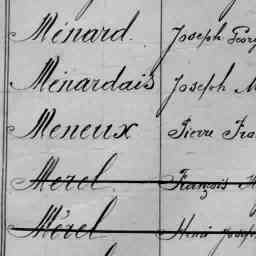 Ménard. Joseph Geor
Ménardais Joseph M
Meneux Pierre Fra
Merel François
Mérel Henri Joseph